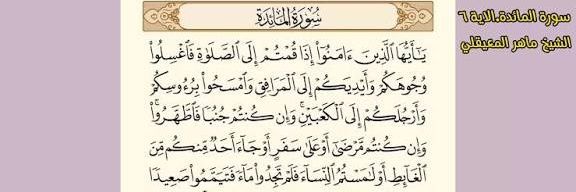 سورة المائدة-الاية ٦
الشيخ ماهر المعيقلي
سُورَةُ المَائِدَةِ
يَٰٓأَيُّهَا ٱلَّذِينَ ءَامَنُوٓا۟ إِذَا قُمْتُمْ إِلَى ٱلصَّلَوٰةِ فَٱغْسِلُوا۟
وُجُوهَكُمْ وَأَيْدِيَكُمْ إِلَى ٱلْمَرَافِقِ وَٱمْسَحُوا۟ بِرُءُوسِكُمْ
وَأَرْجُلَكُمْ إِلَى ٱلْكَعْبَيْنِ ۚ وَإِن كُنتُمْ جُنُبًا فَٱطَّهَّرُوا۟ ۚ
وَإِن كُنتُم مَّرْضَىٰٓ أَوْ عَلَىٰ سَفَرٍ أَوْ جَآءَ أَحَدٌ مِّنكُم مِّنَ
ٱلْغَآئِطِ أَوْ لَٰمَسْتُمُ ٱلنِّسَآءَ فَلَمْ تَجِدُوا۟ مَآءً فَتَيَمَّمُوا۟ صَعِيدًا